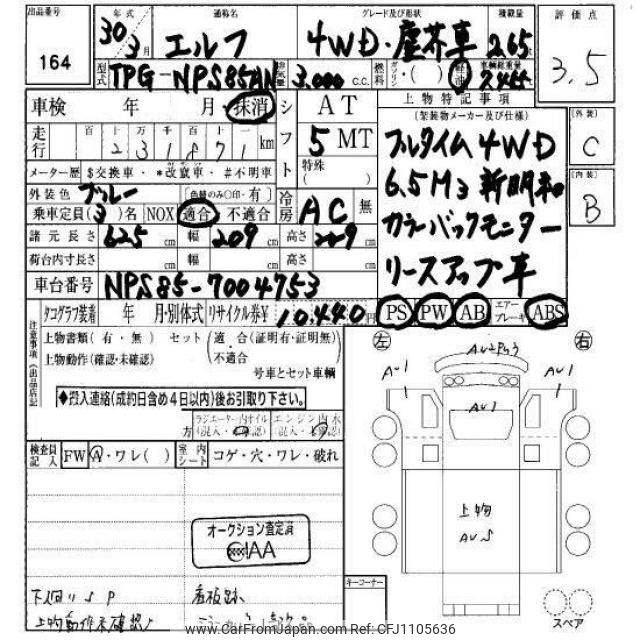 出品番号
164
年式
30年 3月
通称名
エルフ
グレード及び形状
4WD・塵芥車
積載量
2.65
評価点
3.5
型式
TPG-NPS85AN
排気量
3.000 C.C.
燃料
ガソリン・( )
車輌総重量
車検 年 月・抹消
シフト
AT
5 MT
特殊
( )
上物特記事項
(架装物メーカー及び仕様)
フルタイム4WD
6.5M3 新明和
カラーバックモニター
リースアップ車
[外装]
C
[内装]
B
走行
百 十 万 千 百 十 一
231871 km
メーター歴 $交換車・*改竄車・#不明車
外装色
ブルー
(色替のみ○印・有)
冷房
AC 無
乗車定員(3)名 NOX 適合 不適合
諸元長さ 625 cm 幅 209 cm 高さ cm
荷台内寸長さ cm 幅 cm 高さ cm
車台番号 NPS85-7004753
PS PW AB エアーブレーキ ABS
タコグラフ装着 年 月・別体式 リサイクル券¥ 10,440 円
注意事項(出品店記
上物書類(有・無) セット (適合(証明有・証明無)
上物動作(確認・未確認) 不適合
号車とセット車輌
◆搬入連絡(成約日含め4日以内)後お引取り下さい。
検査員記入
FW A・ワレ( )
室内シート
コゲ・穴・ワレ・破れ
左
右
AU1
AU1
AU1
上物
AUS
オークション査定済
IAA
下回りSP
看板跡
上物動作未確認
キーコーナー
スペア
www.CarFromJapan.com Ref:CFJ1105636